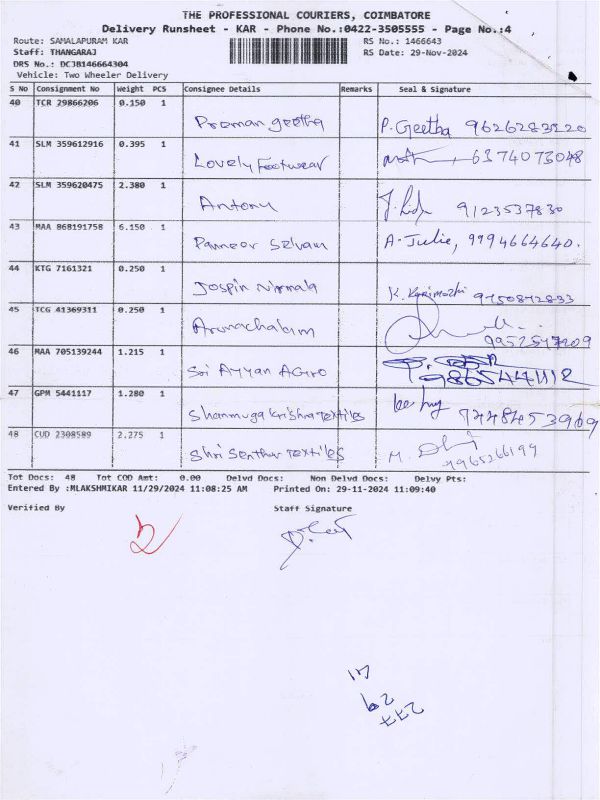 THE PROFESSIONAL COURIERS, COIMBATORE
Delivery Runsheet - KAR - Phone No.:0422-3505555 - Page No.:4
Route: SAMALAPURAM KAR RS No.: 1466643
Staff: THANGARAJ RS Date: 29-Nov-2024
DRS No.: DCJB146664304
Vehicle: Two Wheeler Delivery
S No Consignment No Weight PCS Consignee Details Remarks Seal & Signature
40 TCR 29866206 0.150 1
Preman geetha P. Geetha 9626283220
41 SLM 359612916 0.395 1
Lovely Footwear 6374073048
42 SLM 359620475 2.380 1
Antony 9123537830
43 MAA 868191758 6.150 1
Panneer Selvam A. Julie, 9994664640.
44 KTG 7161321 0.250 1
Jospin Nirmala K. Karimozhi 9750872833
45 TCG 41369311 0.250 1
Arunachalam
9952547209
46 MAA 705139244 1.215 1
Sri Ayyan AGro 9865441112
47 GPM 5441117 1.280 1
Shanmuga Krishna Textiles 9748453969
48 CUD 2308589 2.275 1
Shri Senthur Textiles M.
9965266199
Tot Docs: 48 Tot COD Amt: 0.00 Delvd Docs: Non Delvd Docs: Delvy Pts:
Entered By :MLAKSHMIKAR 11/29/2024 11:08:25 AM Printed On: 29-11-2024 11:09:40
Verified By Staff Signature
29
277